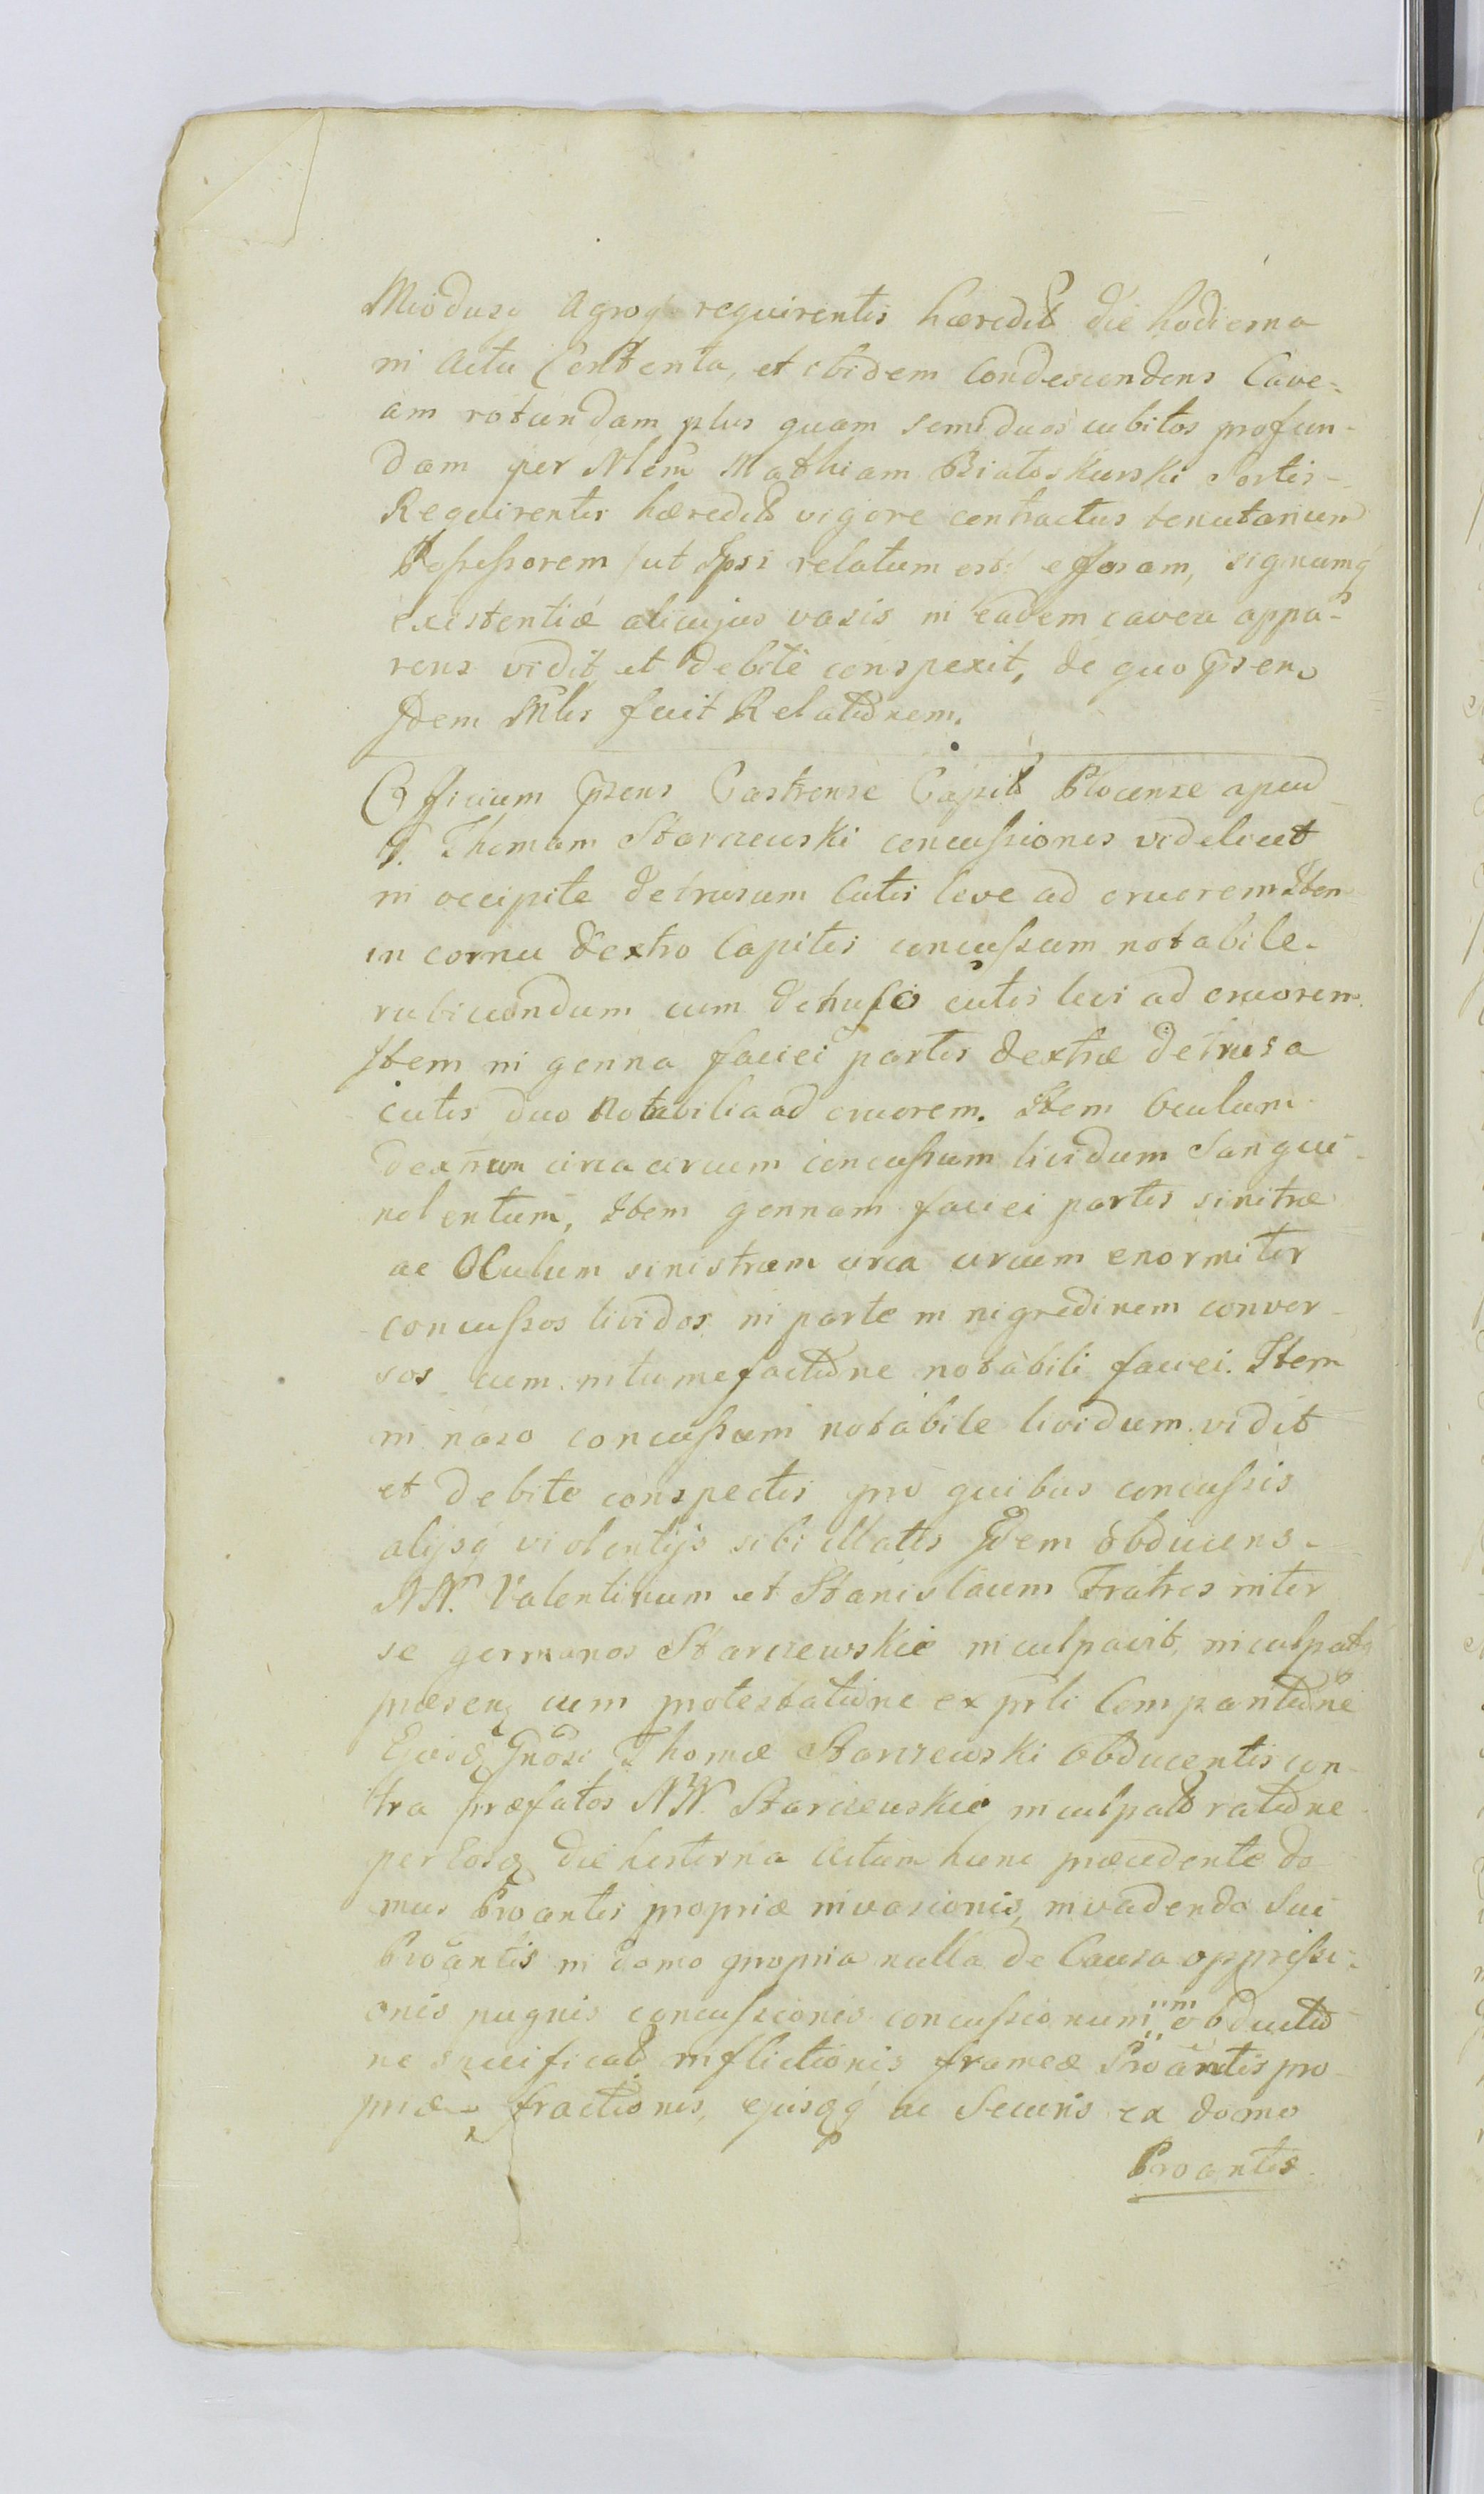 Miodusy Agroq requirentis hæredit die hodierna
in actu Contenta, et ibidem Condescendens Cave-
am rotundam plus quam semiduos cubitos profun-
dam per Nlem Mathiam Białoskurski Sortis
Requirentis hæredit vigore contractus tenutarium
Possessorem /ut Ipsi relatum est/ effosam, signumq
existentiæ alicujus vasis in eadem cavea appa-
rens vidit et debite conspexit, de quo præsen
Idem Mlis fecit Relationem.
Officium præsens Castrense Capit Plocense apud
G. Thomam Starczewski concussiones videlicet
in occipite detrusum Cutis leve ad cruorem Item
in cornu dextro Capitis concussum notabile
rubicundum cum detruso cutis levi ad cruorem.
Item in genna faciei partis dextræ detrusa
cutis duo notabilia ad cruorem. Item Oculum
dextrum circa circum concussum lividum Sangui-
nolentum, Item gennam faciei partis sinitræ
ac Oculum sinistrum circa circum enormiter
concussos lividos in parte in nigredinem conver-
sos cum intumefactione notabili faciei. Item
in naso concussum notabile lividum vidit
et debite conspectis pro quibus concussis
alijsq violentijs sibi illatis Idem obducens
NN. Valentinum et Stanislaum Fratres inter
se germanos Starczewskie inculpavit, inculpatq
præsenz cum protestatione ex prli Comparitione
Ejusd Gnosi Thomæ Starczewski Obducentis con-
tra præfatos NN. Starczewskie inculpatt ratione
per Eosd die hesterna Actum hunc præcedente do
mus Proantis propriæ invasionis, invadendo Sui
Proantis in domo propria nulla de Causa oppressi-
onis pugnis concussionis concussionum in obductio
ne specificat inflictionis frameæ Proantis pro-
priæ fractionis, ejusdq ac Securis ex domo
Proantis